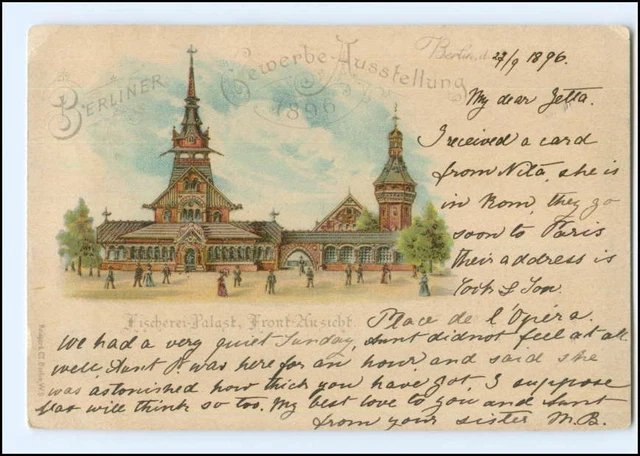 BERLINER
Gewerbe-Ausstellung
1896
Berlin, d. 27/9 1896.
My dear Jetta.
I received a card
from Nita, she is
in Rom, they go
soon to Paris
their address is
Cook & Son
Place de l'Opéra.
Fischerei-Palast, Front-Ansicht.
We had a very quiet Sunday, Aunt did not feel at all
well, Aunt A was here for an hour and said she
was astonished how thick you have got, I suppose
will think so too. My best love to you and Aunt
from your sister M.B.